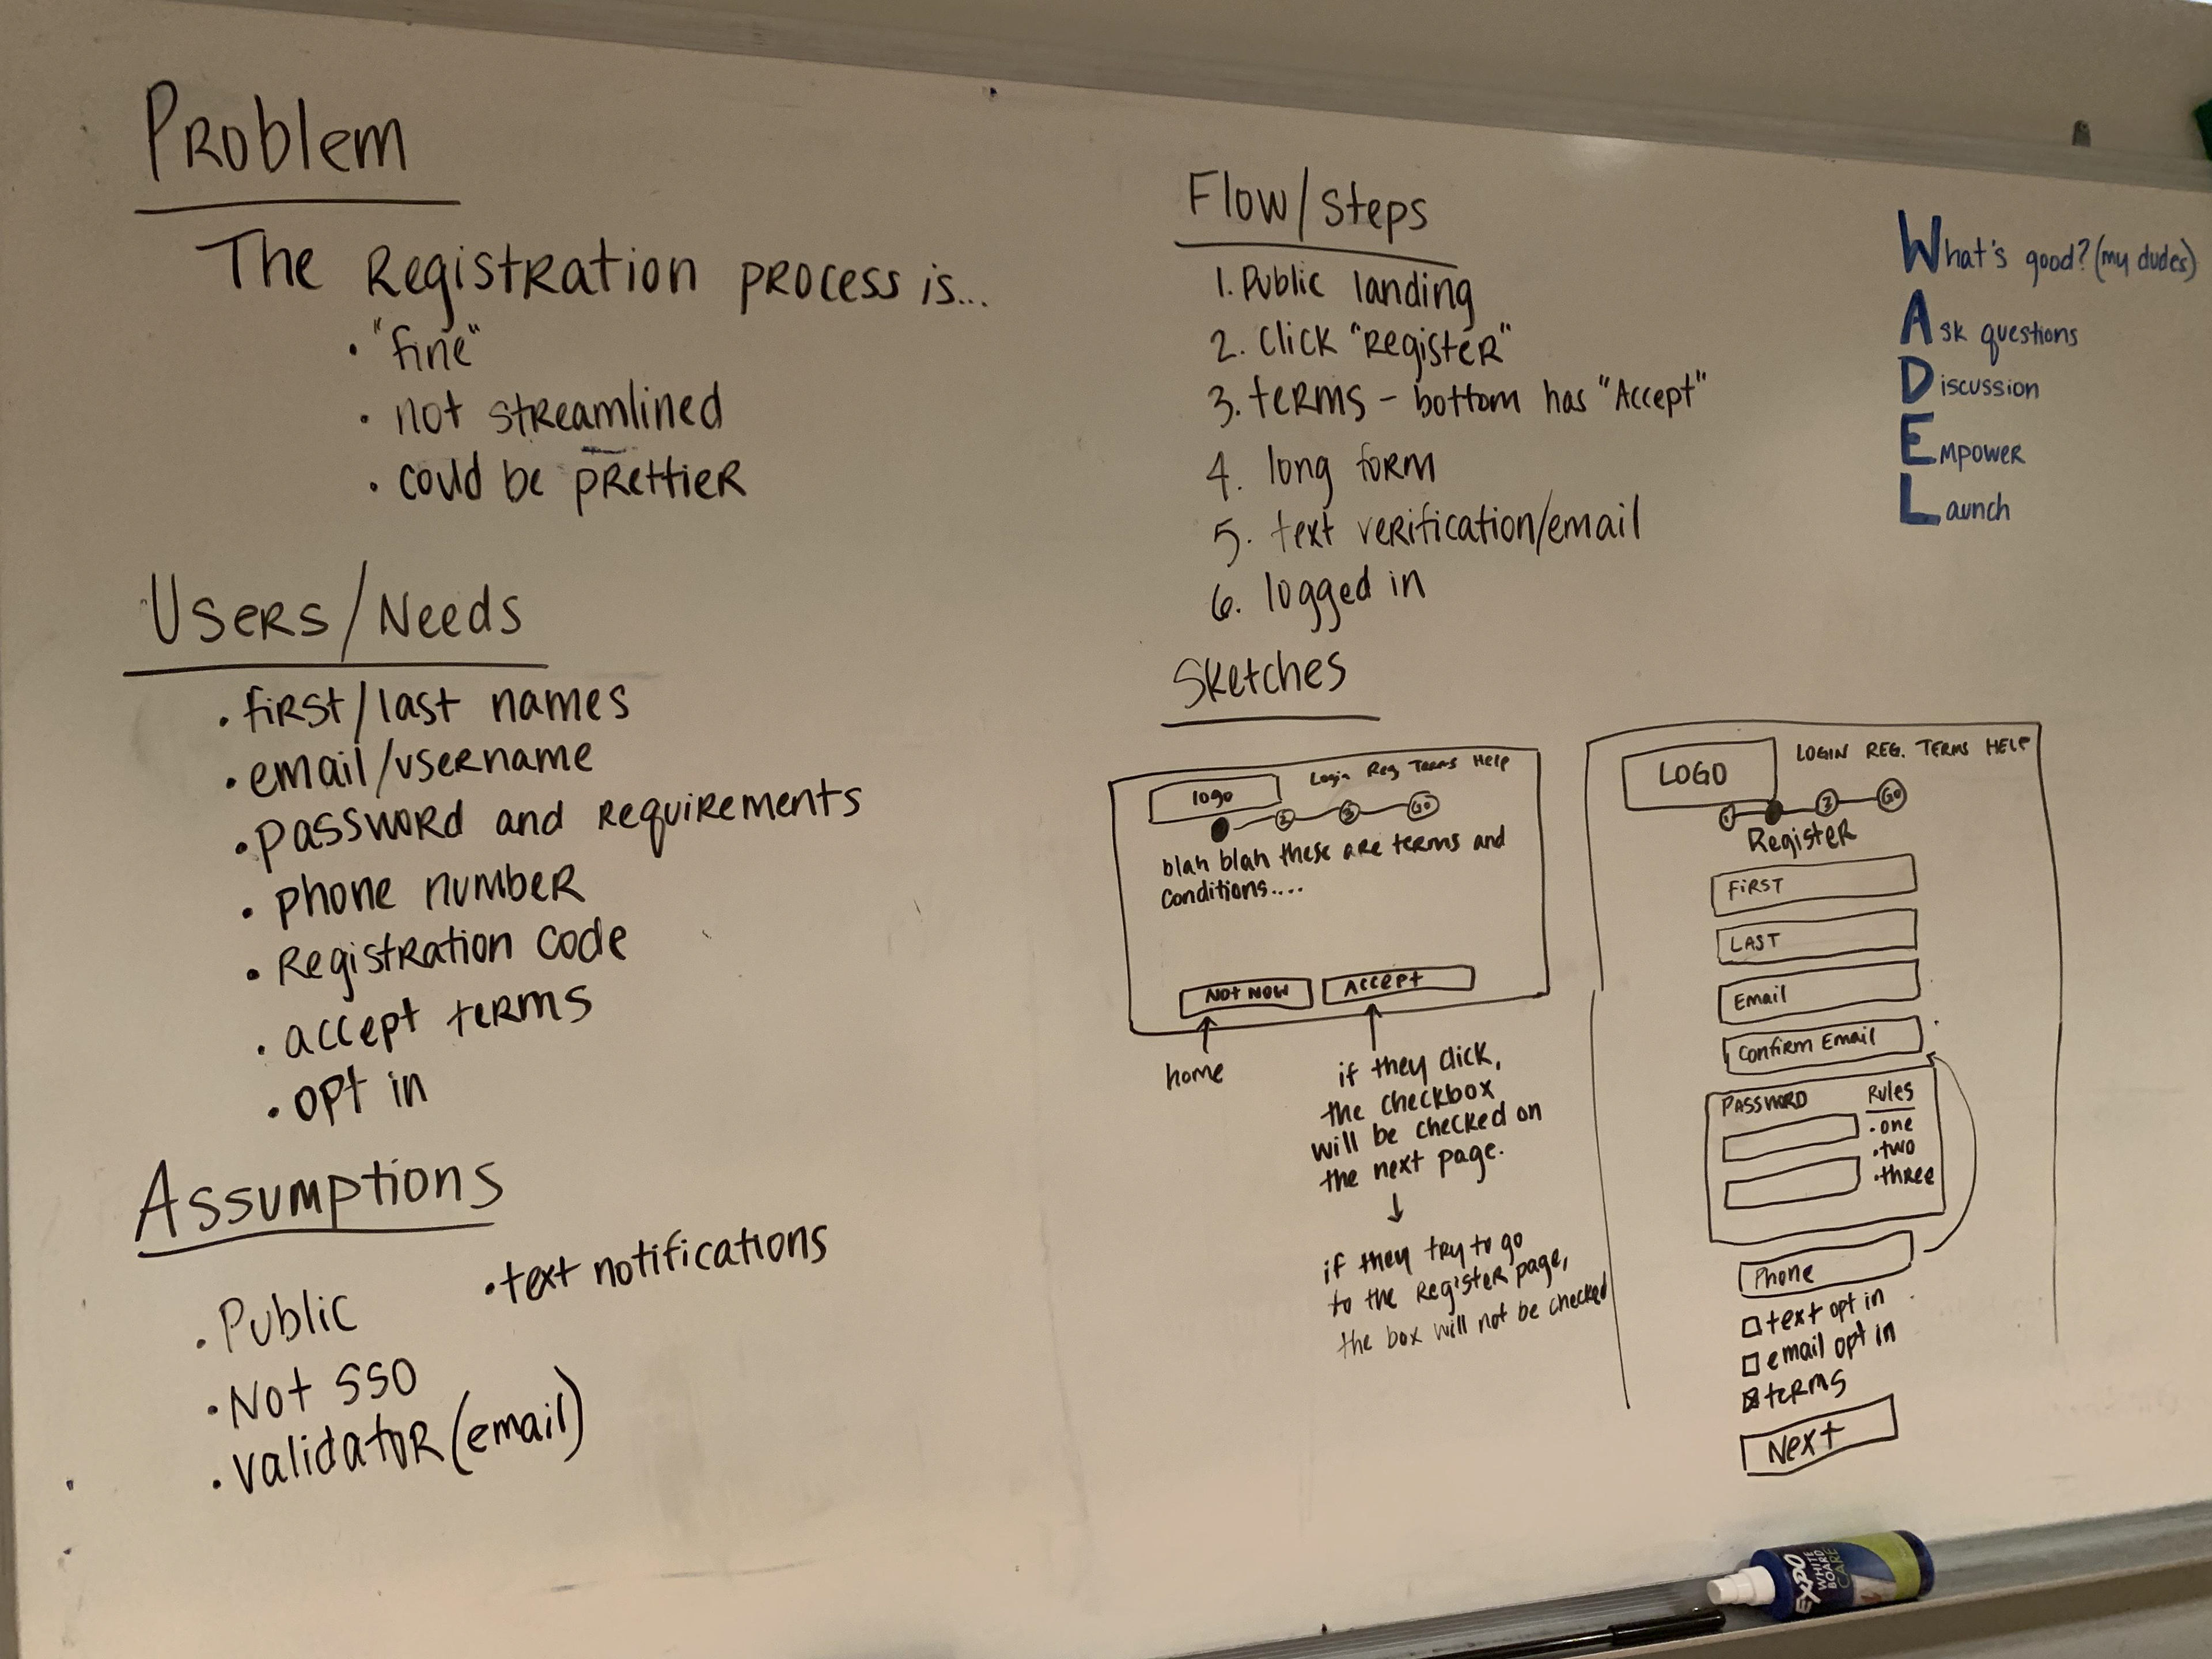 Problem
The Registration process is...
• "fine"
• not streamlined
• could be prettier
Users/Needs
• first/last names
• email/username
• password and requirements
• phone number
• Registration code
• accept terms
• opt in
Assumptions
• Public
• Not SSO
• validator (email)
• text notifications
Flow/Steps
1. Public landing
2. Click "Register"
3. terms - bottom has "Accept"
4. long form
5. text verification/email
6. logged in
Sketches
logo
Login Reg Terms Help
2 3 GO
blah blah these are terms and
conditions....
NOT NOW
ACCEPT
home
if they click,
the checkbox
will be checked on
the next page.
if they try to go
to the Register page,
the box will not be checked
LOGO
LOGIN REG. TERMS HELP
1 3 GO
Register
FIRST
LAST
Email
Confirm Email
PASSWORD
Rules
• one
• two
• three
Phone
text opt in
email opt in
terms
Next
What's good? (my dudes)
Ask questions
Discussion
Empower
Launch
EXPO
WHITE
BOARD
CARE